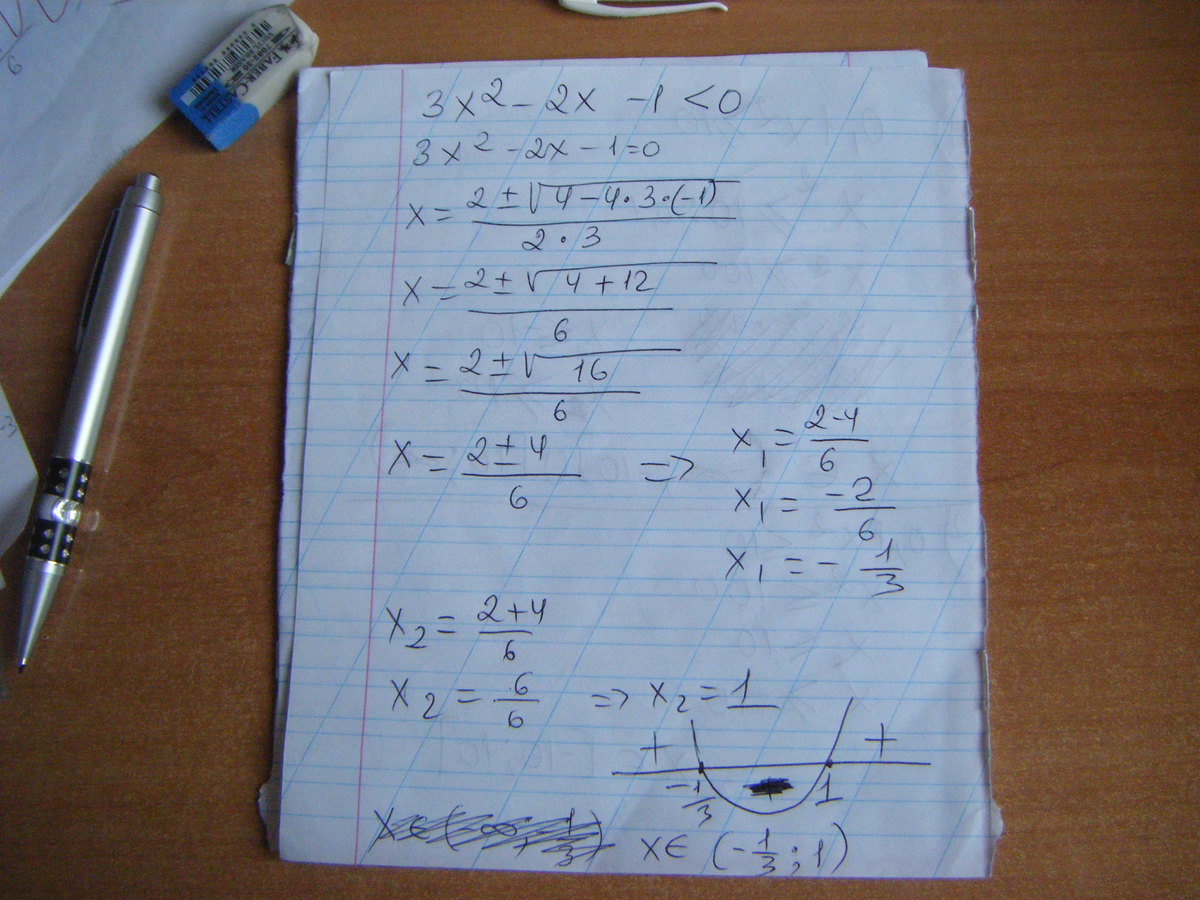 3x² - 2x - 1 < 0
3x² - 2x - 1 = 0
x = (2 ± √(4 - 4·3·(-1))) / (2·3)
x = (2 ± √(4 + 12)) / 6
x = (2 ± √16) / 6
x = (2 ± 4) / 6 => x₁ = (2-4) / 6
x₁ = -2/6
x₁ = - 1/3
x₂ = (2+4) / 6
x₂ = 6/6 => x₂ = 1
+ +
-1/3 1
x∈ (-1/3 ; 1)
FABER-CA